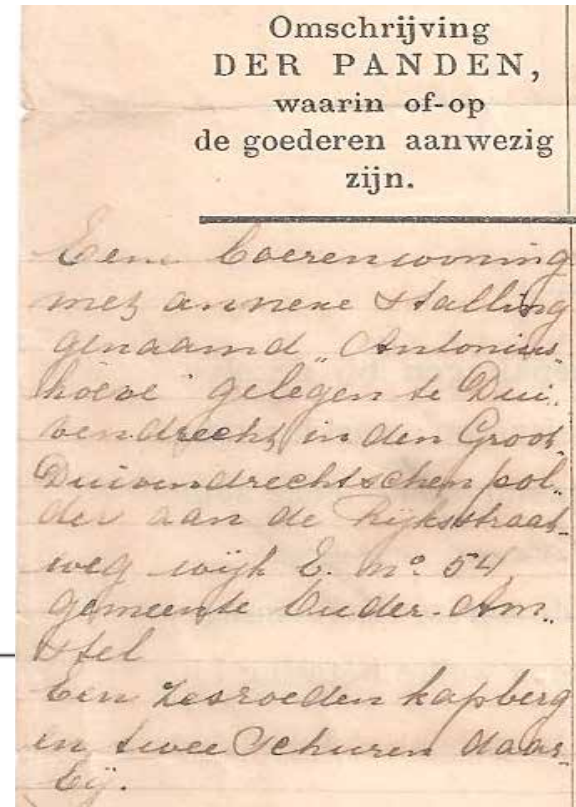 Omschrijving
DER PANDEN,
waarin of-op
de goederen aanwezig
zijn.
Eene boerenwoning
met annexe stalling
genaamd „Antonius
hoeve" gelegen te Dui„
vendrecht in den Groot
Duivendrechtschen pol„
der aan de Rijksstraat„
weg wijk E. no. 54,
gemeente Ouder-Am„
stel
Een zesroeden kapberg
en twee schuren daar„
bij.